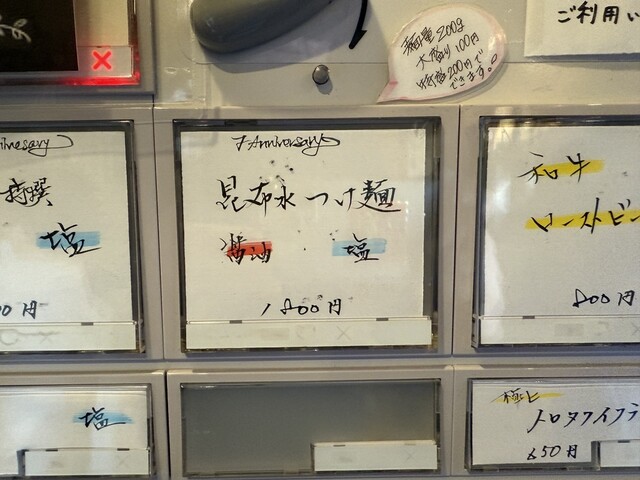 ご利用い
麺量200g
大盛り100円
特盛200円で
できます。
nniversary
特撰
塩
00円
7 Anniversary
昆布水つけ麺
醤油・塩
1800円
和牛
ローストビー
800円
塩
極上
トロタクイクラ
650円